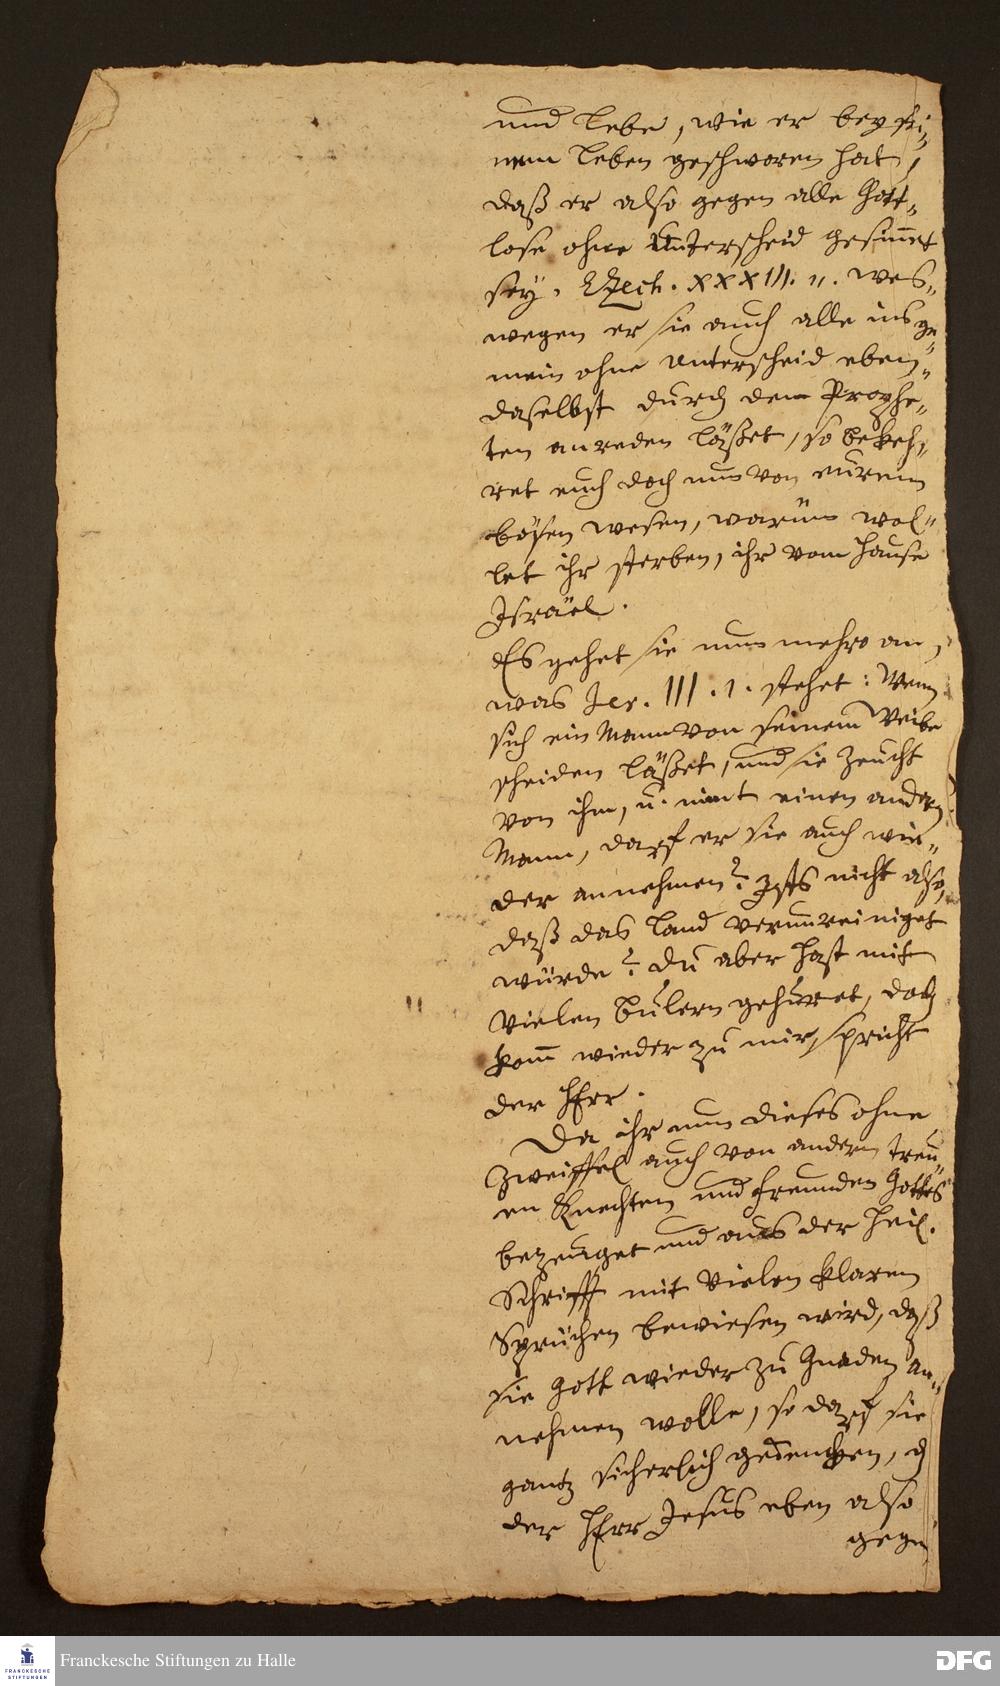 und lebe, wie er bey sei„
nem leben geschworen hat,
daß er also gegen alle Gott„
lose ohne Unterscheid gesinnet
sey. Ezech. XXXIII. 11. wes„
wegen er sie auch alle ins ge„
mein ohne unterscheid eben„
daselbst durch den Prophe„
ten anreden läßet, so bekeh„
ret euch doch nun von eurem
bösen wesen, warum wol„
let ihr sterben, ihr vom Hause
Israel.
Es gehet sie nun mehro an,
was Jer. III. 1. stehet: Wenn
sich ein Mann von seinem Weibe
scheiden läßet, und sie zeucht
von ihm, u. nimt einen andern
Mann, darf er sie auch wie„
der annehmen? Ists nicht also,
daß das land verunreiniget
würde? Du aber hast mit
vielen bulern gehuret, doch
kom̅ wieder zu mir, spricht
der HErr.
Da ihr nun dieses ohne
Zweiffel auch von andern treu„
en Knechten und freunden Gottes
bezeuget und aus der Heil.
Schrifft mit vielen klaren
Sprüchen bewiesen wird, daß
sie Gott wieder zu Gnaden an„
nehmen wolle, so darf sie
gantz sicherlich gedencken, dz
der HErr Jesus eben also
gegen
Franckesche Stiftungen zu Halle
FRANCKESCHE
STIFTUNGEN
DFG